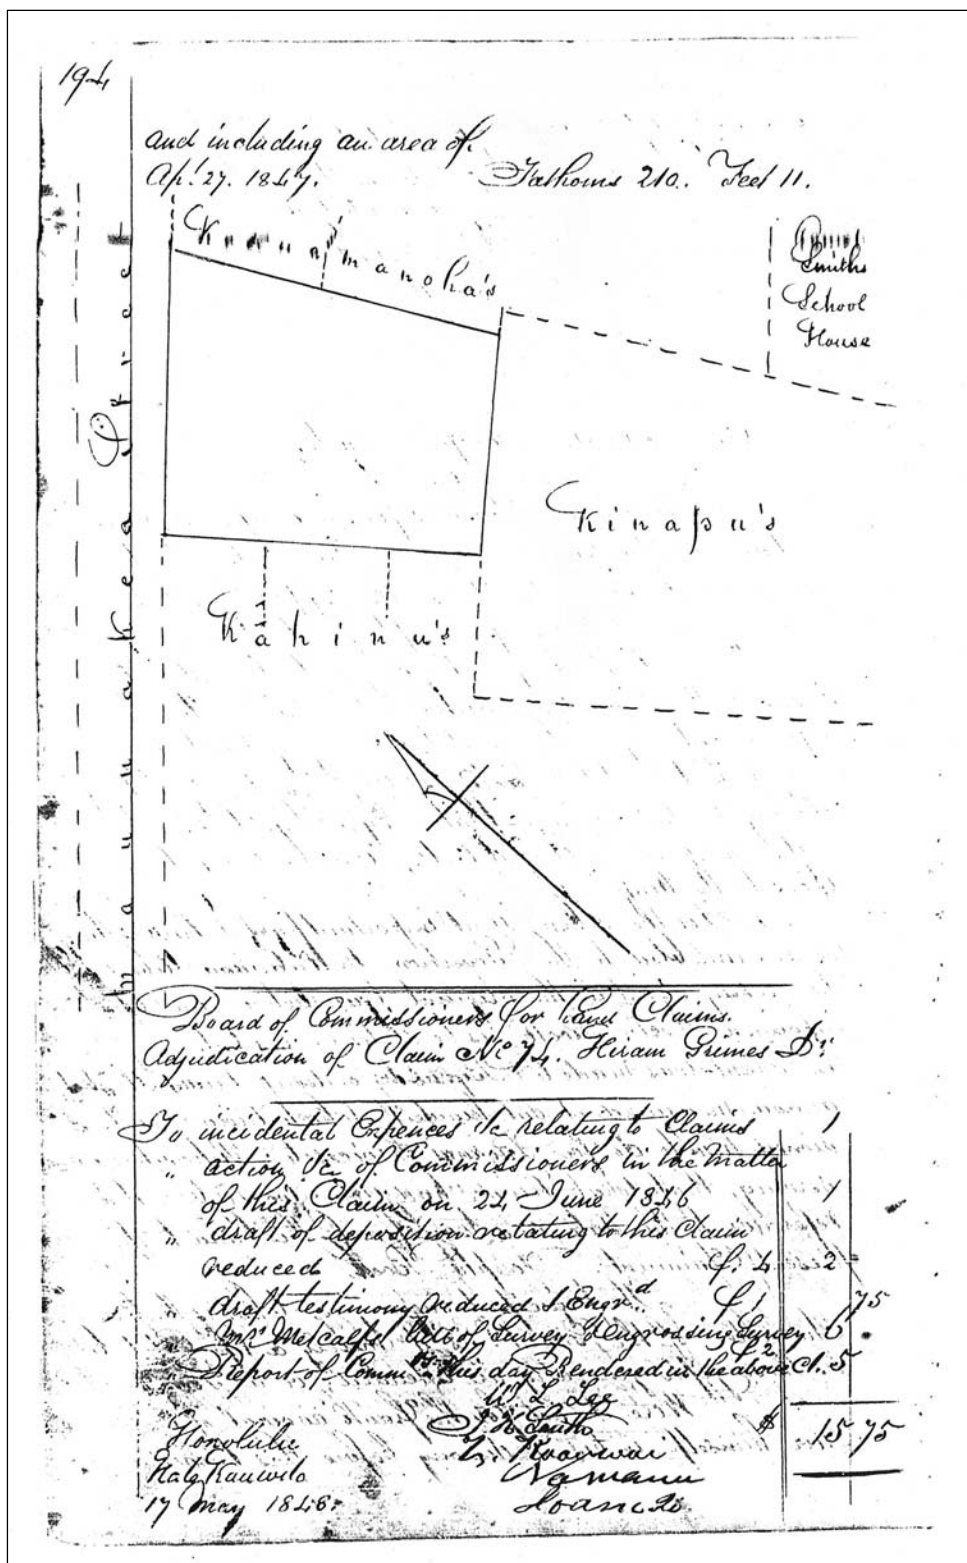 194
and including an area of
Apl. 27. 1847. Fathoms 210. Feet 11.
manoha's
Smiths
School
House
Maunakea Street
Kinapu's
Kahinu's
Board of Commissioners for Land Claims.
Adjudication of Claim No. 74. Hiram Grimes Dr.
To incidental Expences &c relating to Claims 1
" action &c of Commissioners in the Matter
of this Claim on 24 June 1846 1
" draft of deposition relating to this Claim
reduced f. 4 2
" draft testimony reduced & Engrd. f 1 75
" Mr Metcalfs bill of Survey & engrossing Survey 6
" Report of Commrs. this day Rendered in the above Cl. 5
W. L. Lee
Smith
$ 15 75
Honolulu
Hale Kauwila
Namauu
17 May 1848.